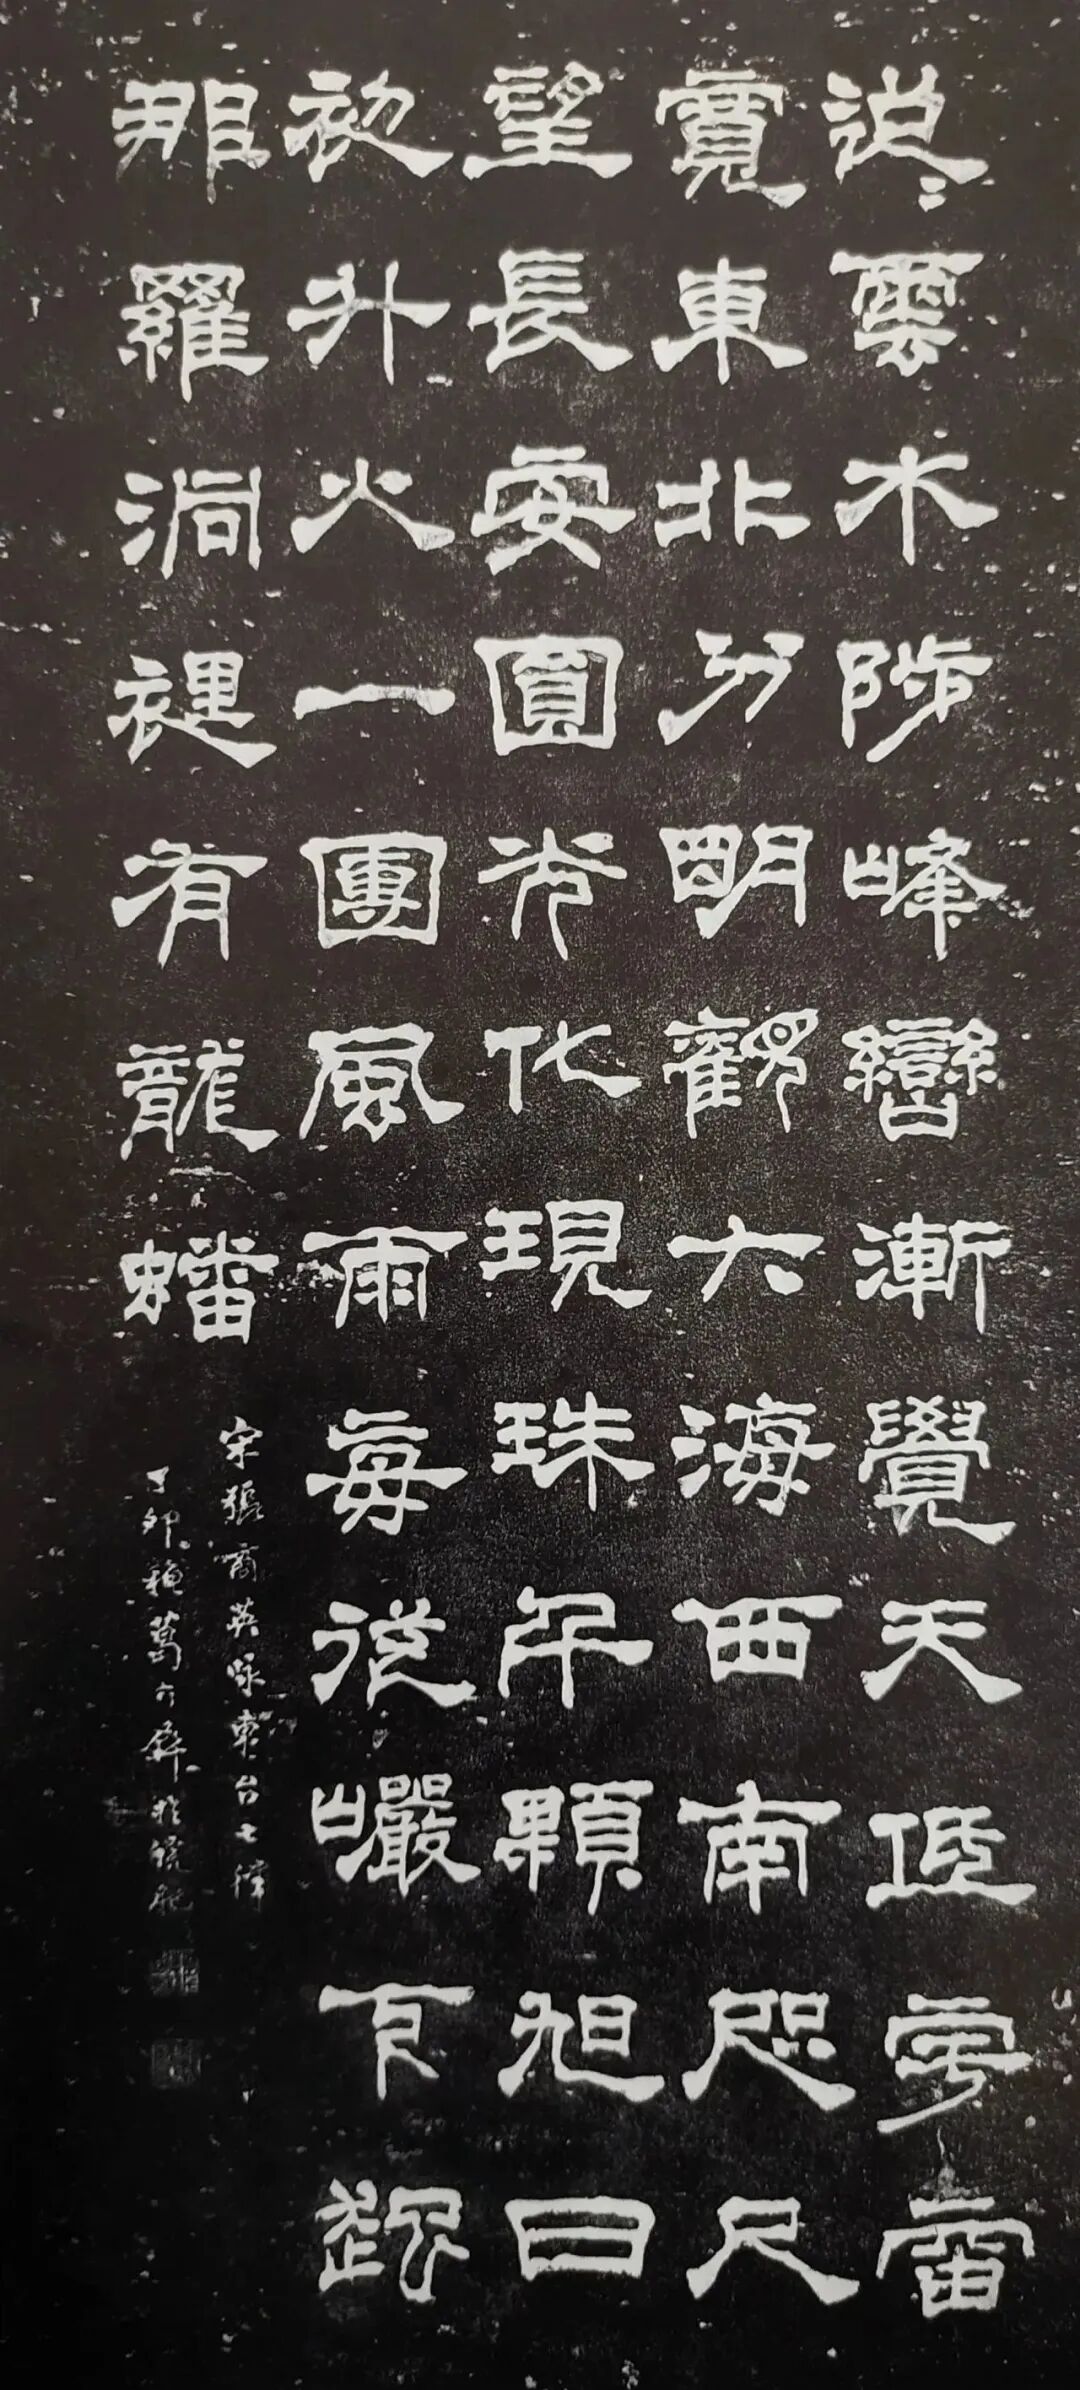 迢〻雲水陟峰巒漸覺天低宇宙
寬東北分明觀大海西南咫尺
望長安圓光化現珠千顆旭日
初升火一團風雨每從巖下起
那羅洞裡有龍蟠
宋張商英詠東台七律
丁卯秋葛介屏於